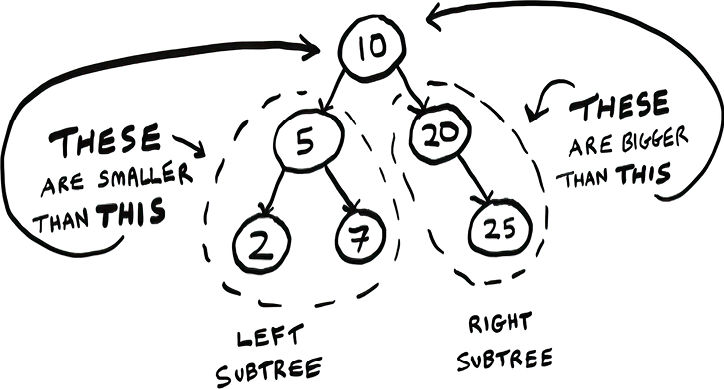 10
THESE
ARE SMALLER
THAN THIS
5
20
THESE
ARE BIGGER
THAN THIS
2
7
25
LEFT
SUBTREE
RIGHT
SUBTREE